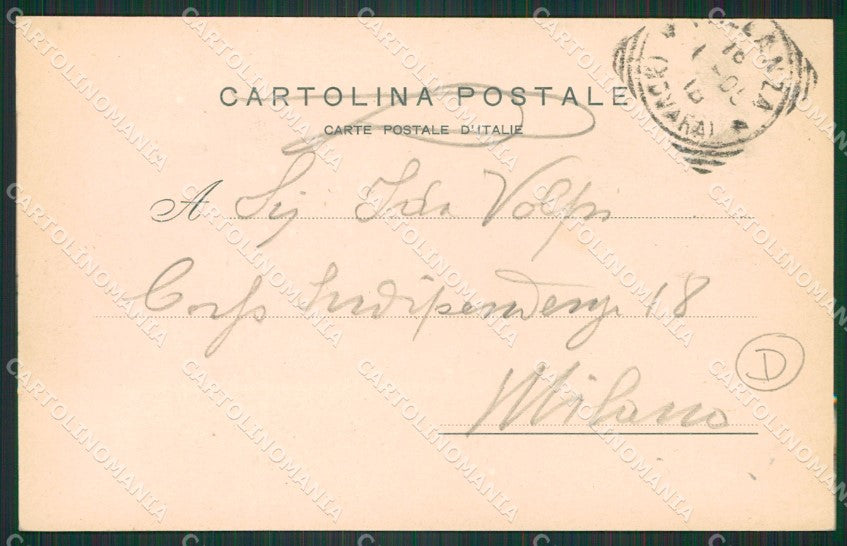 CARTOLINA POSTALE
CARTE POSTALE D'ITALIE
(NOVARA)
A Sig Ida Volpi
Corso Indipendenza 18
D
Milano
CARTOLINOMANIA